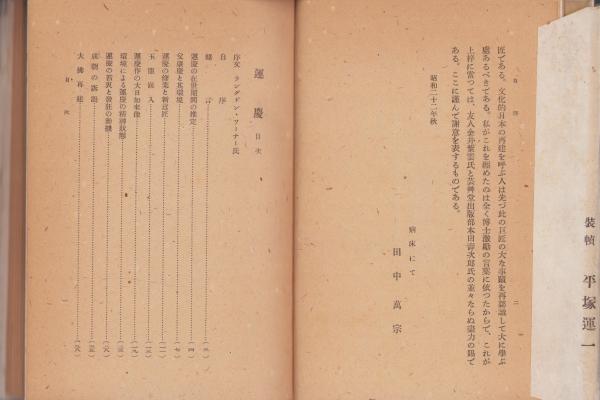 装幀 平塚運一
自序 二
匠である。文化的日本の再建を呼ぶ人は先づ此の巨匠の大な事蹟を再認識して大に學ぶ
處あるべきである。私がこれを纏めたのは全く博士激勵の言葉に依つたからで、これが
上梓に當つては、友人金井紫雲氏と芸艸堂出版部本田壽次郎氏の並々ならぬ盡力の賜で
ある。ここに謹んで謝意を表するものである。
昭和二十二年秋
病床にて
田中萬宗
運慶 目次
序文 ラングドン・ウォーナー氏
自序
緒言
運慶の在世期間の推定
父康慶と其環境
運慶の修業と新造匠
玉眼嵌入
運慶作の大日如來像
環境による運慶の精神狀態
運慶の習衷と發莊の動機
成朝の訴訟
大佛再建
目次 一